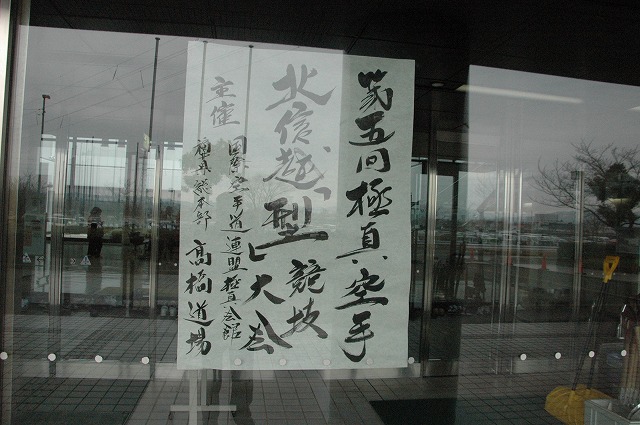 第五回極真空手
北信越「型」競技
大会
主催
国際空手道連盟極真会館
福井総本部 高橋道場